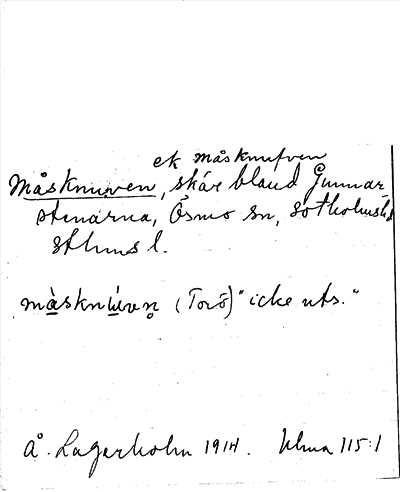 ek måsknufven
Måsknuven, skär bland Gunnar-
stenarna, Ösmo sn, Sotholms hd
Sthms l.
måsknúven̥ (Torö) "icke uts."
Å. Lagerholm 1914. Ulma 115:1